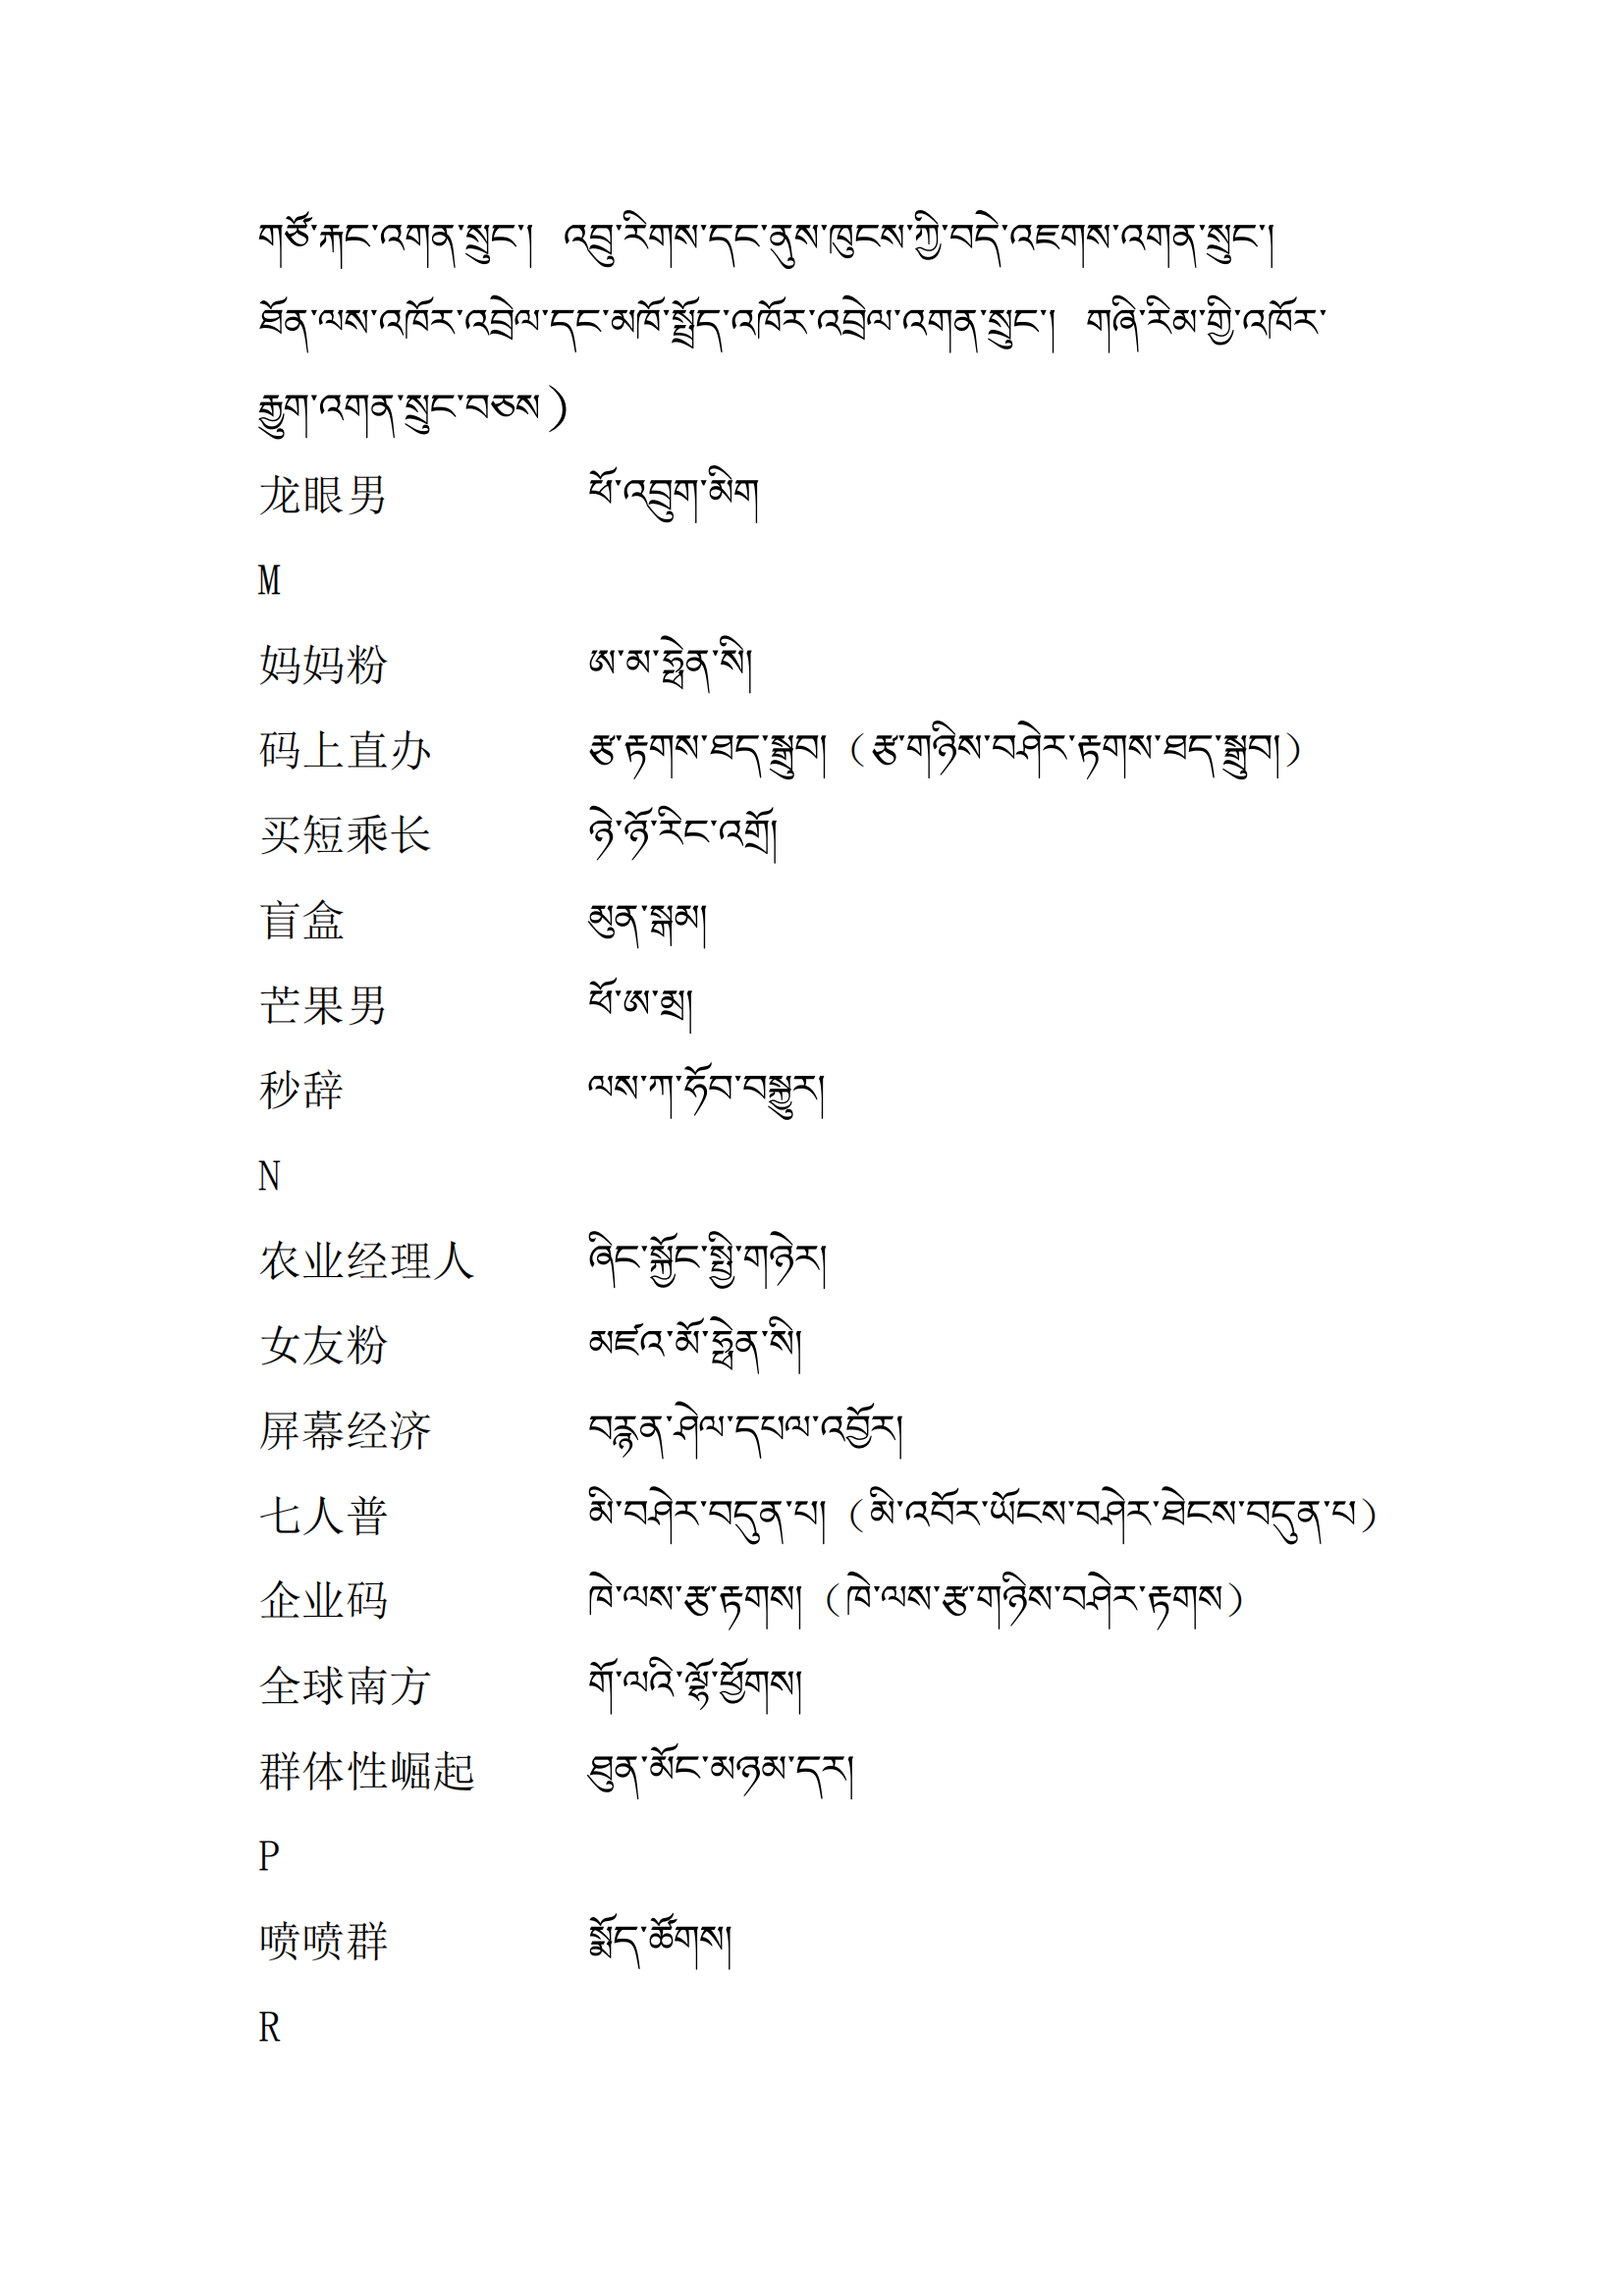 གཙོ་རྐང་འགན་སྲུང་།  འབྲུ་རིགས་དང་ནུས་ཁུངས་ཀྱི་བདེ་འཇགས་འགན་སྲུང་།
ཐོན་ལས་འཁོར་འབྲེལ་དང་མཁོ་སྤྲོད་འཁོར་འབྲེལ་འགན་སྲུང་།  གཞི་རིམ་གྱི་འཁོར་
རྒྱུག་འགན་སྲུང་བཅས)
龙眼男 ཕོ་འབྲུག་མིག
M
妈妈粉 ཨ་མ་ཧྥེན་སི།
码上直办 རྩ་རྟགས་ཐད་སྒྲུབ།（རྩ་གཉིས་བཤེར་རྟགས་ཐད་སྒྲུབ།）
买短乘长 ཉེ་ཉོ་རིང་འགྲོ།
盲盒 མུན་སྒམ།
芒果男 ཕོ་ཨ་མྲ།
秒辞 ལས་ཀ་ཧོབ་བསྐྱུར།
N
农业经理人 ཞིང་སྐྱོང་སྤྱི་གཉེར།
女友粉 མཛའ་མོ་ཧྥེན་སི།
屏幕经济 བརྙན་ཤེལ་དཔལ་འབྱོར།
七人普 མི་བཤེར་བདུན་པ།（མི་འབོར་ཡོངས་བཤེར་ཐེངས་བདུན་པ）
企业码 ཁེ་ལས་རྩ་རྟགས།（ཁེ་ལས་རྩ་གཉིས་བཤེར་རྟགས）
全球南方 གོ་ལའི་ལྷོ་ཕྱོགས།
群体性崛起 ཐུན་མོང་མཉམ་དར།
P
喷喷群 སྨོད་ཚོགས།
R